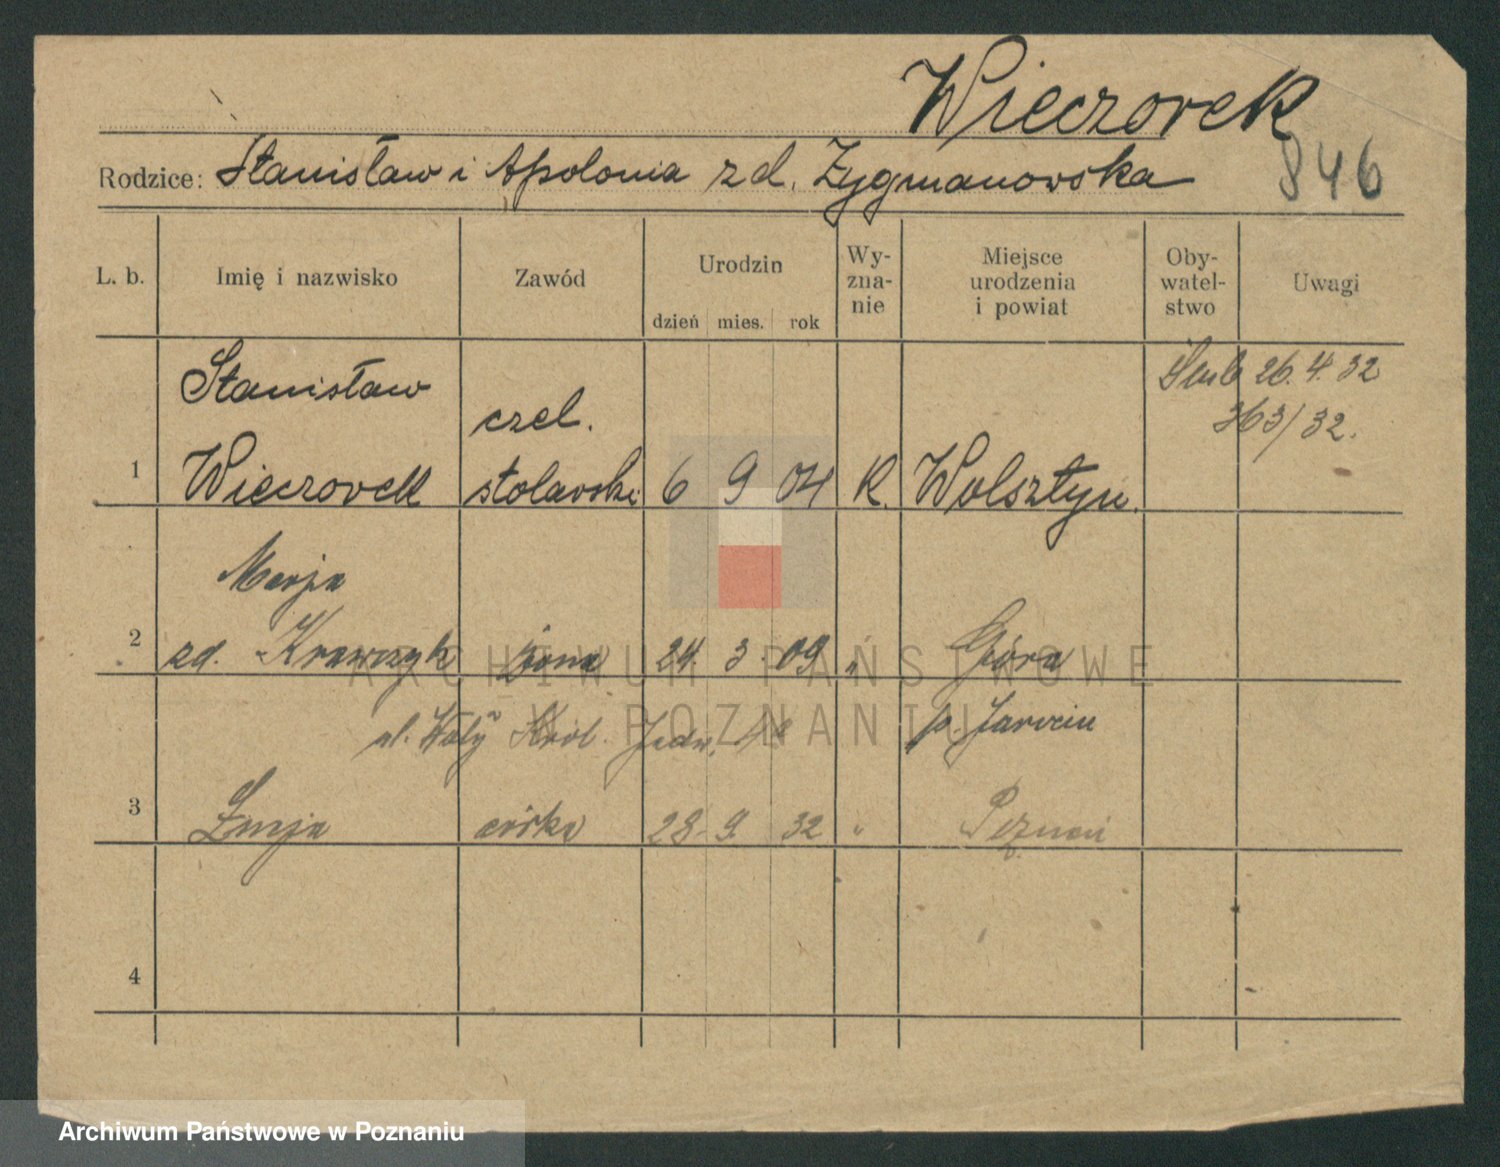 Wieczorek
846
Rodzice: Stanisław i Apolonia zd. Zygmanowska
L. b. Imię i nazwisko Zawód Urodzin dzień mies. rok Wy-zna-nie Miejsce urodzenia i powiat Oby-watel-stwo Uwagi
Ślub 26. 4. 32
363/32.
Stanisław czel.
1 Wieczorek stolarski 6 9 04 R. Wolsztyn.
Marja
2 zd. Krawczyk żona 24. 3. 09 " Góra
ul. Wały Król. Jadw. p. Jarocin
3 córka 28. 9. 32 " Poznań
4
ARCHIWUM PAŃSTWOWE
W POZNANIU
Archiwum Państwowe w Poznaniu